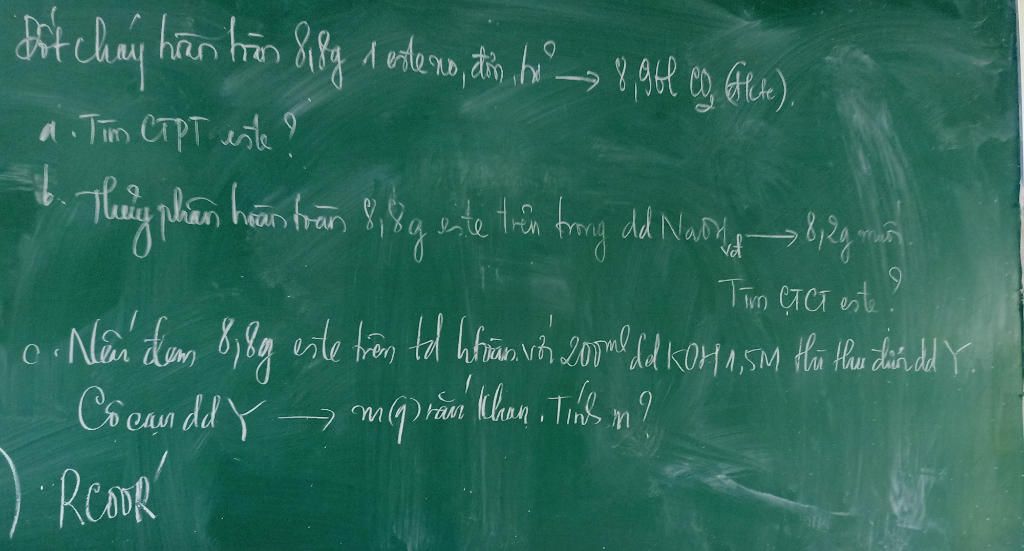 Đốt cháy hoàn toàn 8,8g 1 este no, đơn, hở → 8,96l CO2 (đktc).
a. Tìm CTPT este?
b. Thủy phân hoàn toàn 8,8g este trên trong dd NaOH vđ → 8,2g muối.
Tìm CTCT este?
c. Nếu đem 8,8g este trên td htoàn với 200ml dd KOH 1,5M thì thu được dd Y.
Cô cạn dd Y → m(g) rắn khan. Tính m?
) RCOOR'